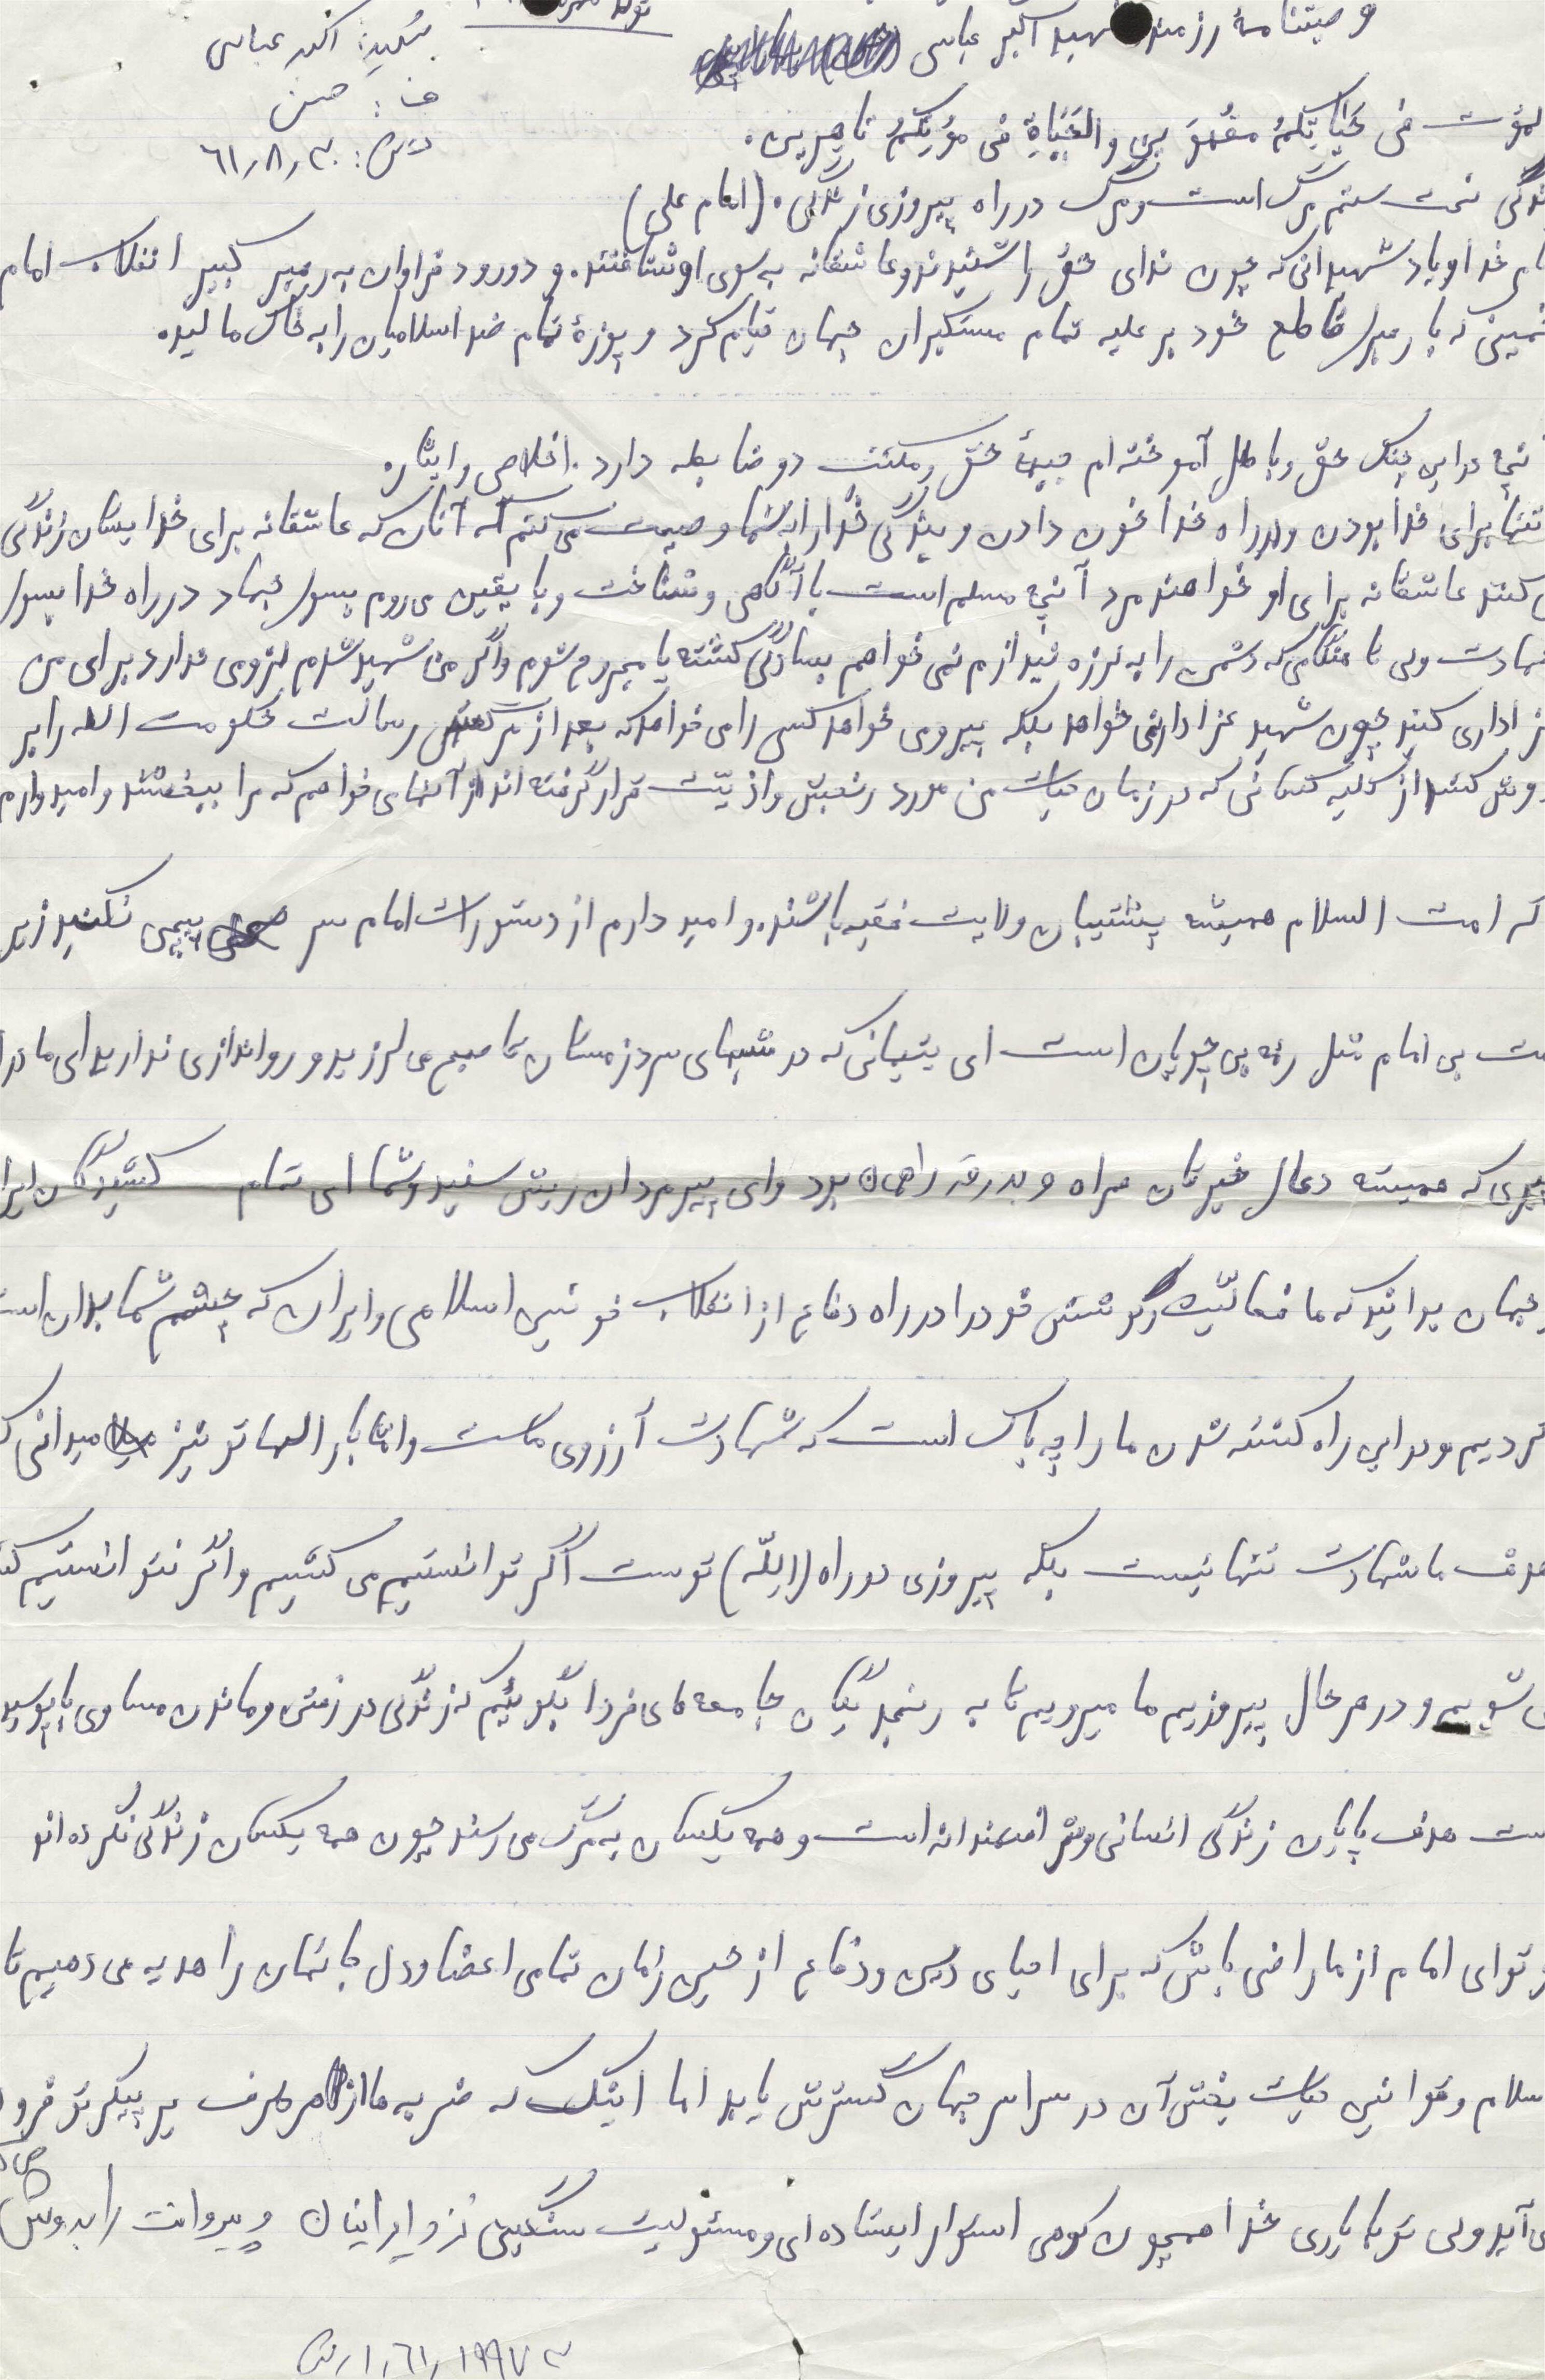 وصیتنامهٔ رزمنده شهید اکبر عباسی
شهید: اکبر عباسی
ف: حسن
۶۱٫۸٫۳۰
فی حَیٰاتِکُمْ مقْهُورین والحَیٰاةِ فی مَوْتِکُمْ قاهِرین.
زندگی تحت ستم مرگ است و مرگ در راه پیروزی زندگی. (امام علی)
خدا و یاد شهیدانی که چون ندای حق را شنیدند و عاشقانه به سوی او شتافتند. و دورود فراوان به رهبر کبیر انقلاب امام
خمینی که با رهبری قاطع خود بر علیه تمام مستکبران جهان قیام کرد و پوزهٔ تمام ضد اسلامیان را به خاک مالید.
در این جنگ حق و باطل آموخته ام جبههٔ حق و مکتب دو ضابطه دارد. اخلاص و ایثار.
تنها برای خدا بودن و در راه خدا خون دادن و یژگی خدارا به شما وصیت می کنم که آنان که عاشقانه برای خدایشان زندگی
می کنند عاشقانه برای او خواهند مرد آنچه مسلم است با آگاهی و شناخت و با یقین می روم بسوی جهاد در راه خدا بسوی
شهادت ولی تا هنگامی که دشمن را به لرزه نیندازم نمی خواهم بسادگی کشته یا مجروح شوم و اگر من شهید شدم لزومی ندارد برای من
عزاداری کنید چون شهید عزادار نمی خواهد بلکه پیرو می خواهد کسی را می خواهد که بعد از مرگش رسالت حکومت الله را بر
دوش کشد از کلیه کسانی که در زمان حیات من مورد رنجش و اذیّت قرار گرفته اند از آنها می خواهم که مرا ببخشند و امیدوارم
که امت السلام همیشه پشتیبان ولایت فقیه باشند. و امید دارم از دستورات امام سر پیچی نکنید زیر
بی امام مثل رمه بی چوپان است ای یتیمانی که در شبهای سرد زمستان تا صبح می لرزید و رواندازی ندارید ای مادر
پیری که همیشه دعای خیرتان همراه و بدرقه راهمان بود و ای پیرمردان ریش سفید و شما ای تمام
جهان بدانید که ما فعالیّت و کوشش خود را در راه دفاع از انقلاب خونین اسلامی و ایران که چشم شما بدان است
کردیم و در این راه کشته شدن ما را چه باک است که شهادت آرزوی ماست و اما بار الها تو نیز میدانی که
هدف ما شهادت تنها نیست بلکه پیروزی در راه (اللّه) توست اگر توانستیم می کشیم و اگر نتوانستیم
می شویم و در هر حال پیروزیم ما میرویم تا به جامعه های فردا بگوئیم که زندگی در رفتن و ماندن مساوی با پوسید
است هدف پایان زندگی انسانی و شرافتمندانه است و همه یکسان به مرگ می رسند چون همه یکسان زندگی نکرده اند
تو ای امام از ما راضی باش که برای احیای دین و دفاع از حسین زمان تمامی اعضا و دل و جانمان را هدیه می دهیم تا
اسلام و قوانین حیات بخش آن در سراسر جهان گسترش یابد اما اینک که ضربه ها از هر طرف بر پیکر تو فرود
می آید ولی تو با یاری خدا همچون کوهی استوار ایستاده ای و مسئولیت سنگین ایرانیان و پیروانت را بدوش